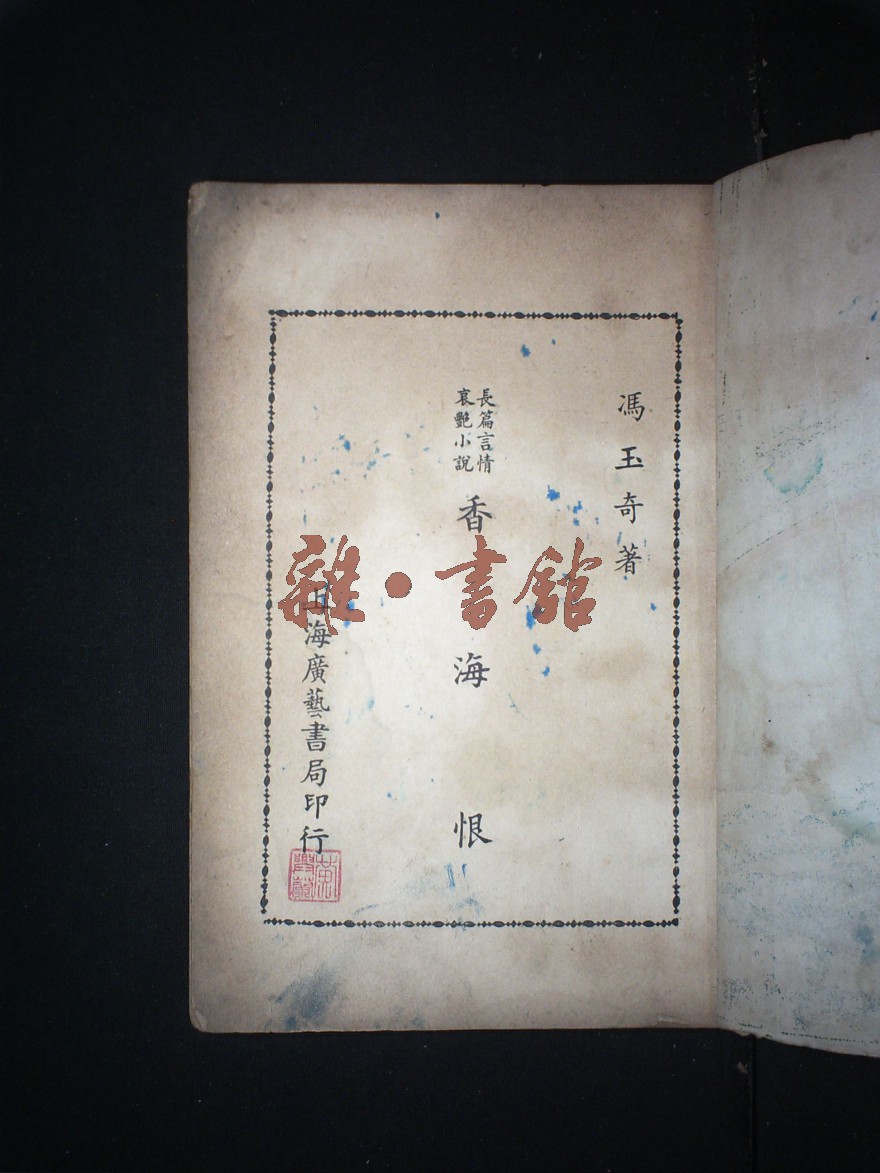 馮玉奇著
長篇言情
哀艷小說
香海恨
上海廣藝書局印行
雜·書館